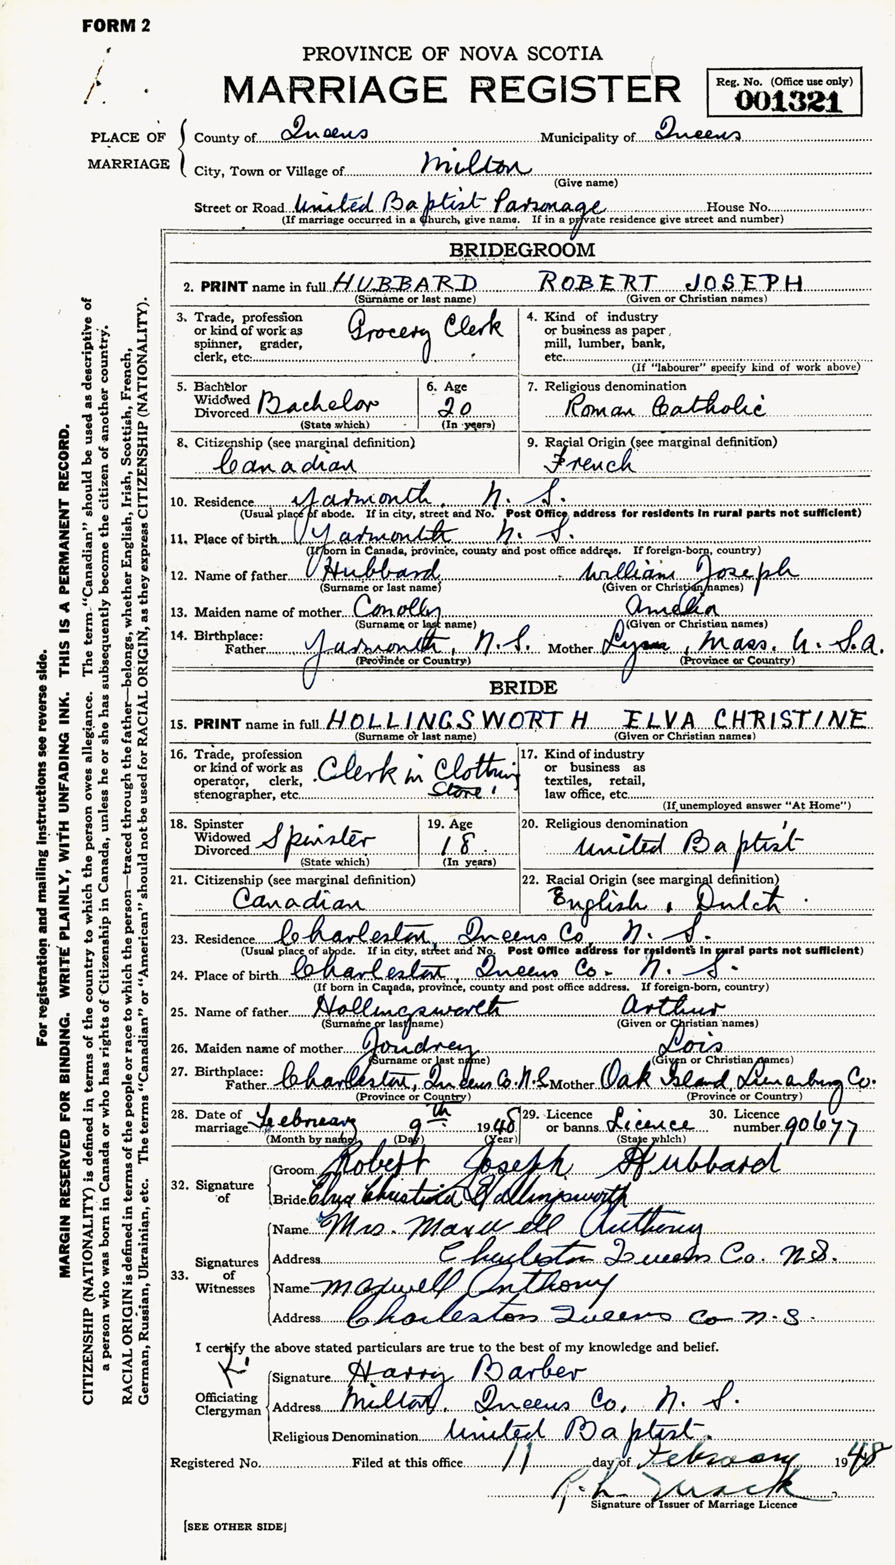 FORM 2
PROVINCE OF NOVA SCOTIA
MARRIAGE REGISTER
Reg. No. (Office use only)
001321
PLACE OF MARRIAGE
County of Queens Municipality of Queens
City, Town or Village of Milton
(Give name)
Street or Road United Baptist Parsonage House No.
(If marriage occurred in a church, give name. If in a private residence give street and number)
BRIDEGROOM
2. PRINT name in full HUBBARD ROBERT JOSEPH
(Surname or last name) (Given or Christian names)
3. Trade, profession or kind of work as spinner, grader, clerk, etc. Grocery Clerk
4. Kind of industry or business as paper mill, lumber, bank, etc.
(If "labourer" specify kind of work above)
5. Bachelor Widowed Divorced Bachelor
(State which)
6. Age 20
(In years)
7. Religious denomination
Roman Catholic
8. Citizenship (see marginal definition)
Canadian
9. Racial Origin (see marginal definition)
French
10. Residence Yarmouth, N. S.
(Usual place of abode. If in city, street and No. Post Office address for residents in rural parts not sufficient)
11. Place of birth Yarmouth N. S.
(If born in Canada, province, county and post office address. If foreign-born, country)
12. Name of father Hubbard William Joseph
(Surname or last name) (Given or Christian names)
13. Maiden name of mother Conolly Amelia
(Surname or last name) (Given or Christian names)
14. Birthplace:
Father Yarmouth, N.S. Mother Lynn, Mass. U. S. A.
(Province or Country) (Province or Country)
BRIDE
15. PRINT name in full HOLLINGSWORTH ELVA CHRISTINE
(Surname or last name) (Given or Christian names)
16. Trade, profession or kind of work as operator, clerk, stenographer, etc. Clerk in Clothing Store
17. Kind of industry or business as textiles, retail, law office, etc.
(If unemployed answer "At Home")
18. Spinster Widowed Divorced Spinster
(State which)
19. Age 18
(In years)
20. Religious denomination
United Baptist
21. Citizenship (see marginal definition)
Canadian
22. Racial Origin (see marginal definition)
English, Dutch
23. Residence Charleston, Queens Co, N. S.
(Usual place of abode. If in city, street and No. Post Office address for residents in rural parts not sufficient)
24. Place of birth Charleston, Queens Co. N. S.
(If born in Canada, province, county and post office address. If foreign-born, country)
25. Name of father Hollingsworth Arthur
(Surname or last name) (Given or Christian names)
26. Maiden name of mother Joudrey Lois
(Surname or last name) (Given or Christian names)
27. Birthplace:
Father Charleston, Queens Co. N.S Mother Oak Island, Lunenburg Co.
(Province or Country) (Province or Country)
28. Date of marriage February 9th 1948
(Month by name) (Day) (Year)
29. Licence or banns Licence
(State which)
30. Licence number 90677
32. Signature of
Groom Robert Joseph Hubbard
Bride Elva Christine Hollingsworth
33. Signatures of Witnesses
Name Mrs. Maxwell Anthony
Address Charleston Queens Co. N.S.
Name Maxwell Anthony
Address Charleston Queens Co N.S.
I certify the above stated particulars are true to the best of my knowledge and belief.
Officiating Clergyman
Signature Harry Barber
Address Milton, Queens Co, N. S.
Religious Denomination United Baptist.
Registered No. Filed at this office 11 day of February 1948
Signature of Issuer of Marriage Licence
[SEE OTHER SIDE]
For registration and mailing instructions see reverse side.
MARGIN RESERVED FOR BINDING. WRITE PLAINLY, WITH UNFADING INK. THIS IS A PERMANENT RECORD.
CITIZENSHIP (NATIONALITY) is defined in terms of the country to which the person owes allegiance. The term "Canadian" should be used as descriptive of
a person who was born in Canada or who has rights of Citizenship in Canada, unless he or she has subsequently become the citizen of another country.
RACIAL ORIGIN is defined in terms of the people or race to which the person—traced through the father—belongs, whether English, Irish, Scottish, French,
German, Russian, Ukrainian, etc. The terms "Canadian" or "American" should not be used for RACIAL ORIGIN, as they express CITIZENSHIP (NATIONALITY).